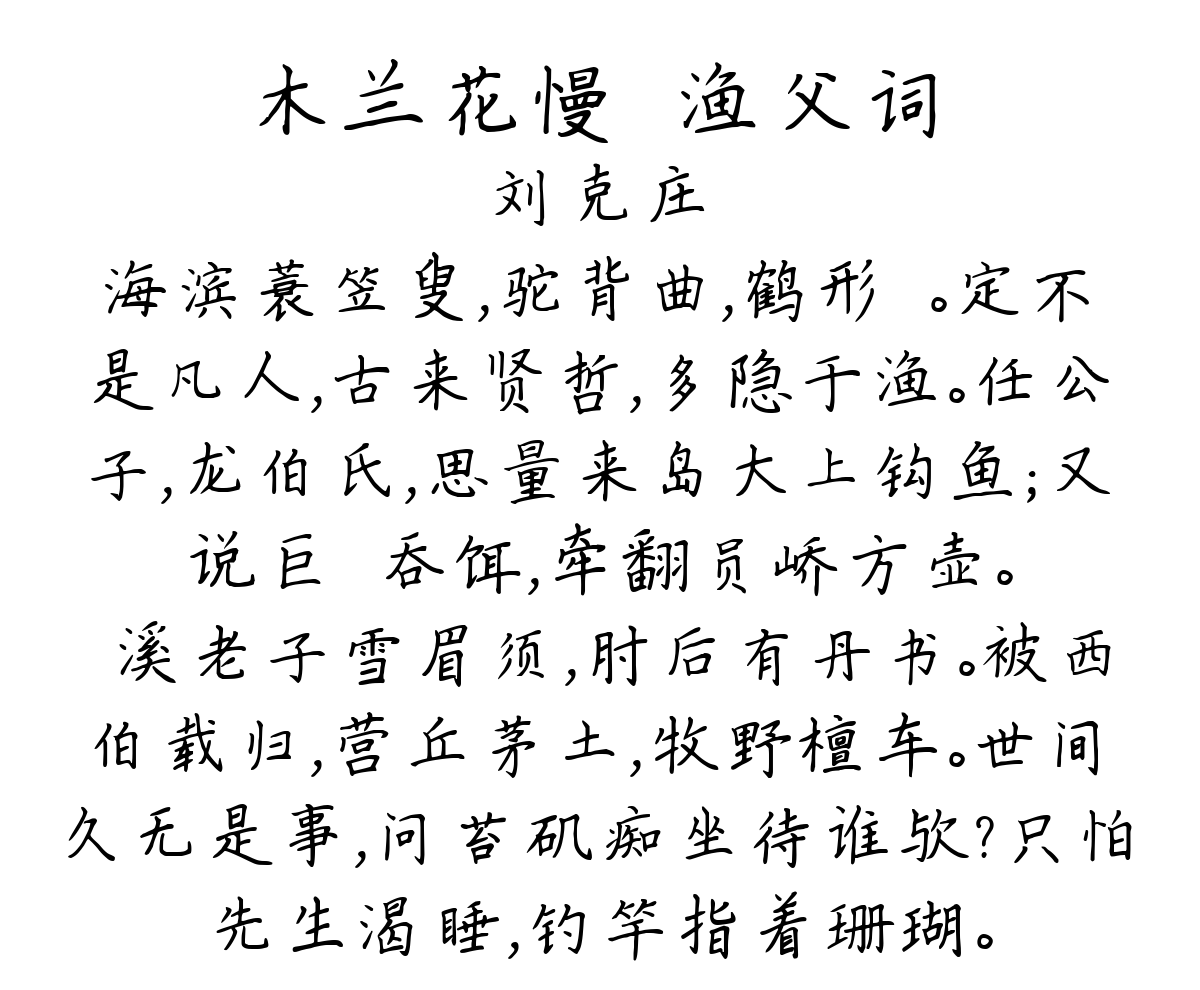 木兰花慢 渔父词
刘克庄
海滨蓑笠叟,驼背曲,鹤形 。定不
是凡人,古来贤哲,多隐于渔。任公
子,龙伯氏,思量来岛大上钩鱼;又
说巨 吞饵,牵翻员峤方壶。
溪老子雪眉须,肘后有丹书。被西
伯载归,营丘茅土,牧野檀车。世间
久无是事,问苔矶痴坐待谁欤?只怕
先生渴睡,钓竿指着珊瑚。